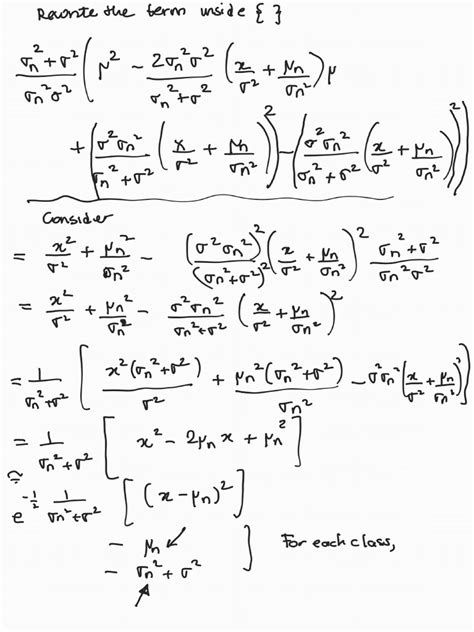 Rewrite the term inside { }
\frac{σ_n^2 + σ^2}{σ_n^2 σ^2} ( μ^2 − \frac{2σ_n^2 σ^2}{σ_n^2 + σ^2} ( \frac{x}{σ^2} + \frac{μ_n}{σ_n^2} ) μ
+ ( \frac{σ^2 σ_n^2}{σ_n^2 + σ^2} ( \frac{x}{σ^2} + \frac{μ_n}{σ_n^2} ) )^2 − ( \frac{σ^2 σ_n^2}{σ_n^2 + σ^2} ( \frac{x}{σ^2} + \frac{μ_n}{σ_n^2} ) )^2 )
Consider
= \frac{x^2}{σ^2} + \frac{μ_n^2}{σ_n^2} − \frac{(σ^2 σ_n^2)^2}{(σ_n^2 + σ^2)^2} ( \frac{x}{σ^2} + \frac{μ_n}{σ_n^2} )^2 \frac{σ_n^2 + σ^2}{σ_n^2 σ^2}
= \frac{x^2}{σ^2} + \frac{μ_n^2}{σ_n^2} − \frac{σ^2 σ_n^2}{σ_n^2 + σ^2} ( \frac{x}{σ^2} + \frac{μ_n}{σ_n^2} )^2
= \frac{1}{σ_n^2 + σ^2} [ \frac{x^2 (σ_n^2 + σ^2)}{σ^2} + \frac{μ_n^2 (σ_n^2 + σ^2)}{σ_n^2} − σ^2 σ_n^2 ( \frac{x}{σ^2} + \frac{μ_n}{σ_n^2} )^2 ]
= \frac{1}{σ_n^2 + σ^2} [ x^2 − 2μ_n x + μ_n^2 ]
≅
e^{-\frac{1}{2}} \frac{1}{σ_n^2 + σ^2} [ (x − μ_n)^2 ]
− μ_n ] For each class,
− σ_n^2 + σ^2